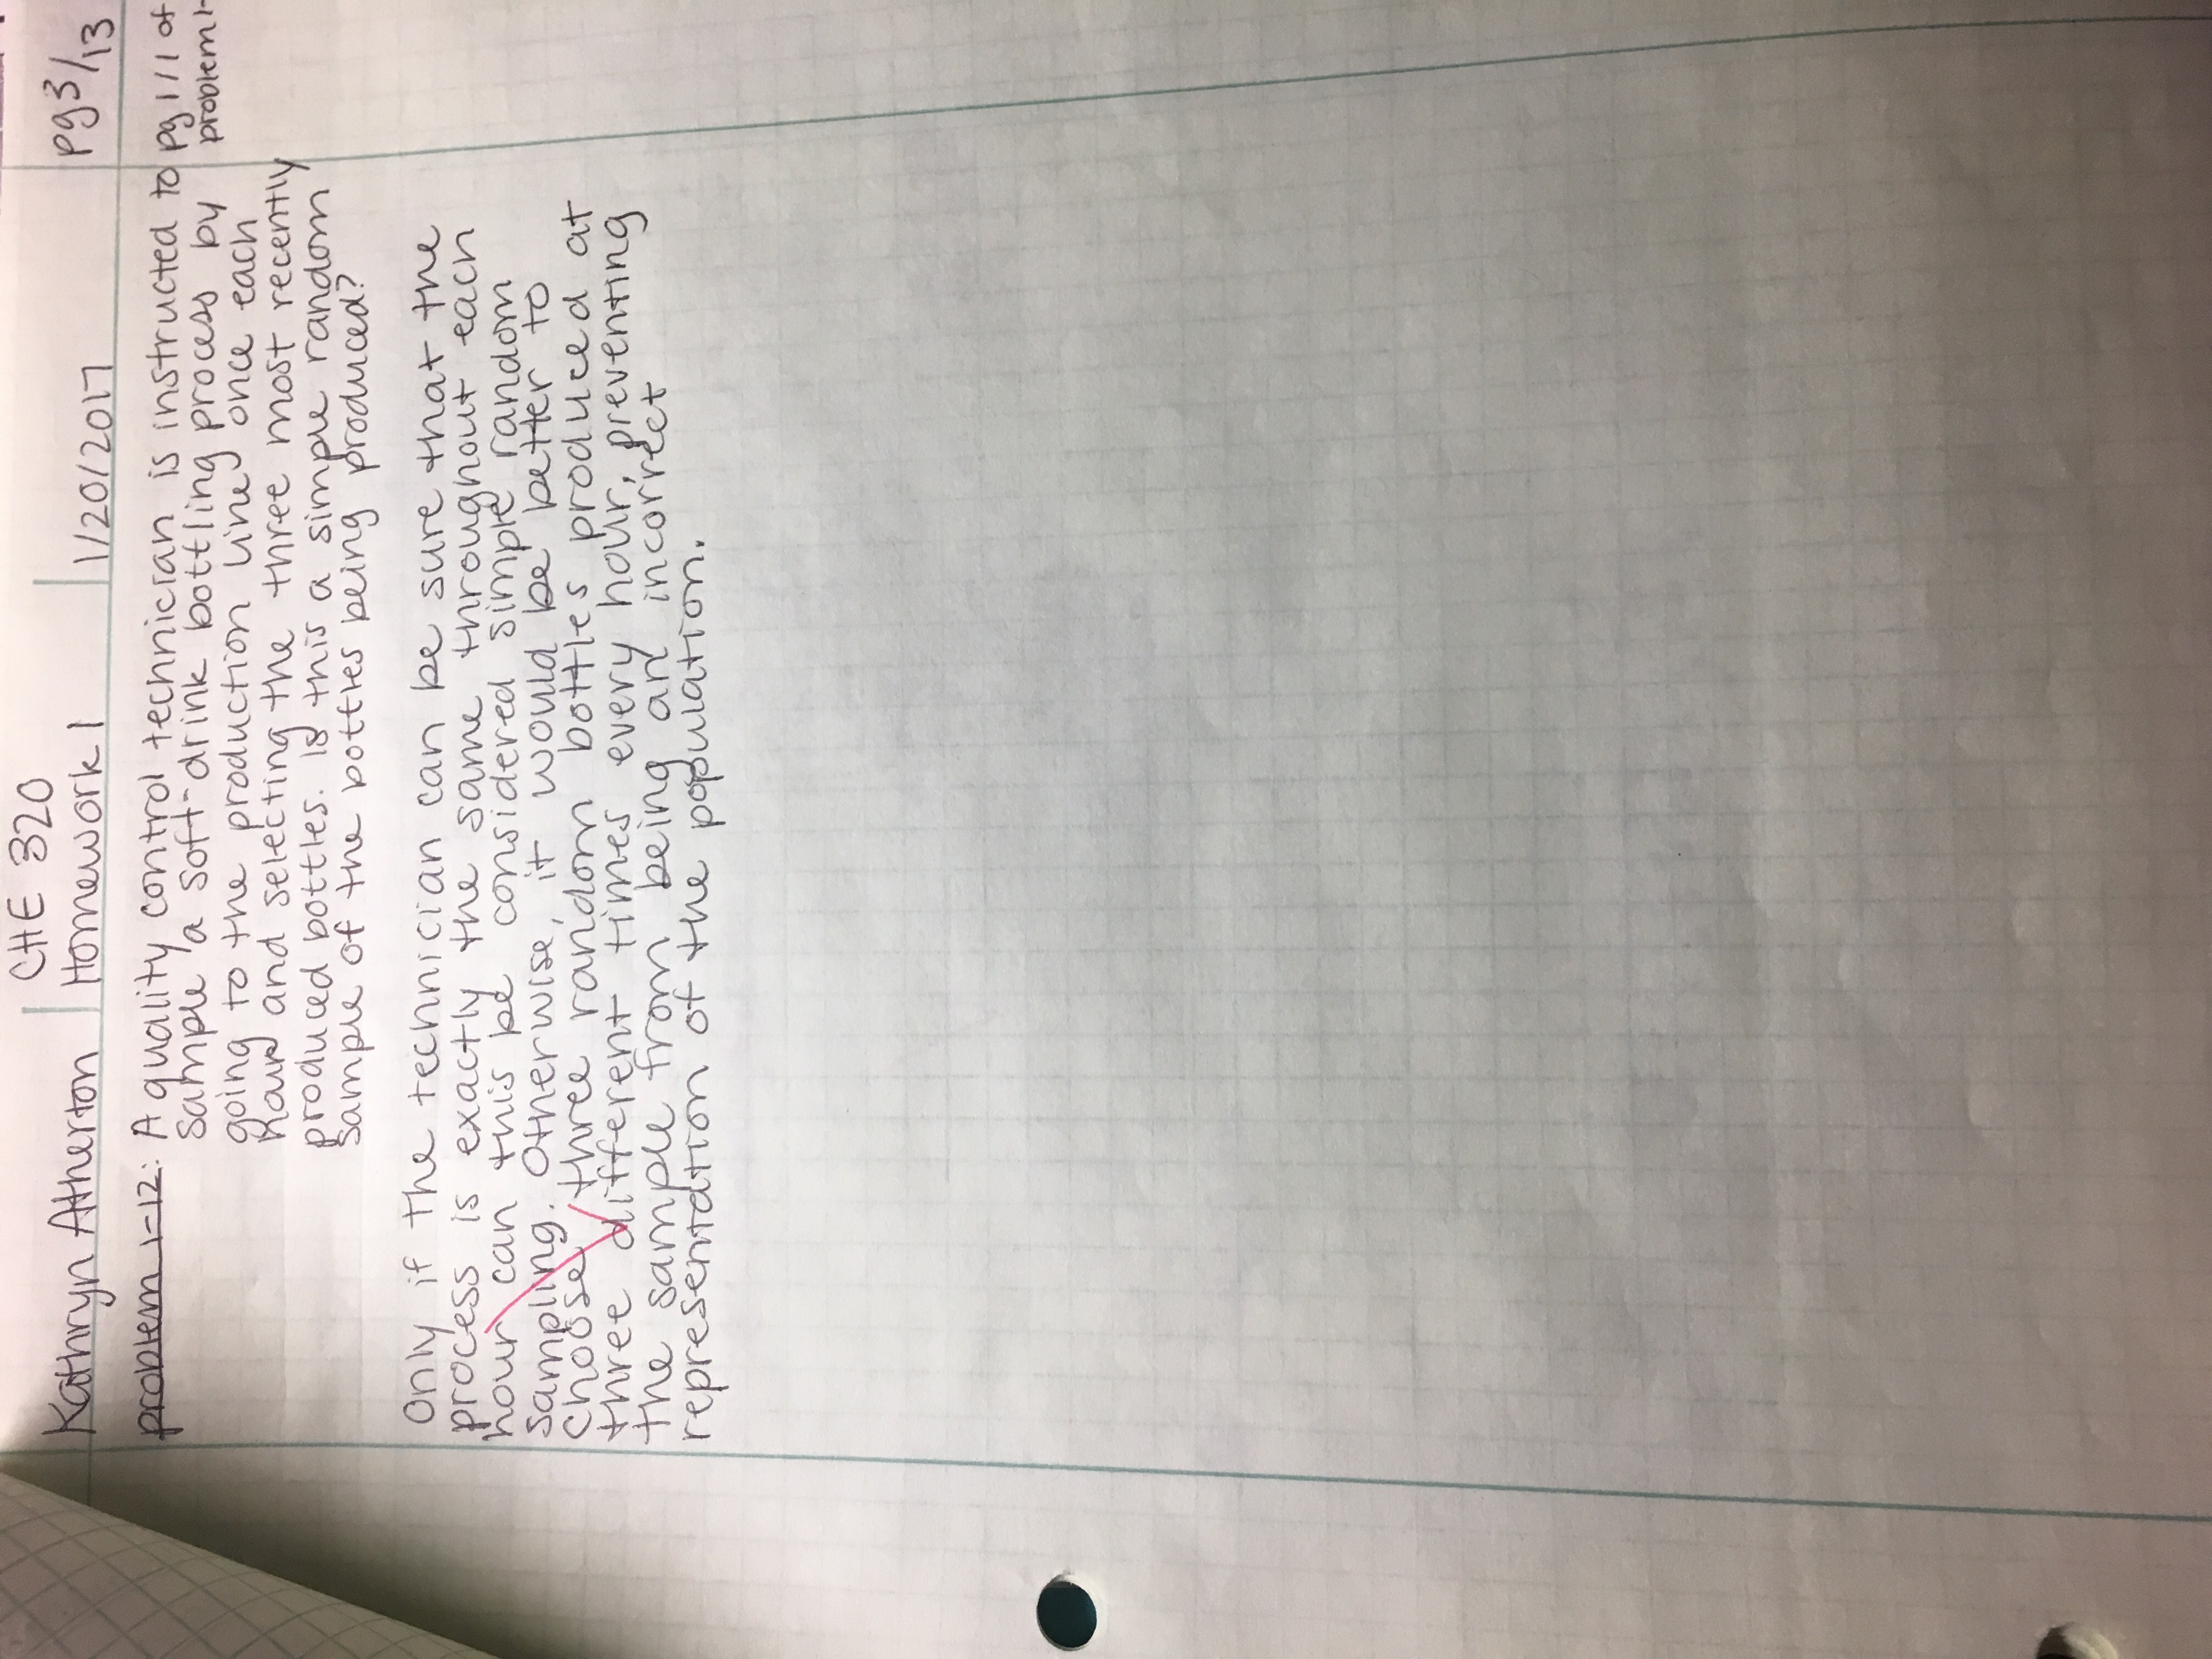 CHE 320
Kathryn Atherton Homework 1 1/20/2017 pg3/13
problem 1-12: A quality control technician is instructed to pg 1/1 of
sample a soft-drink bottling process by problem 1-
going to the production line once each
hour and selecting the three most recently
produced bottles. Is this a simple random
sample of the bottles being produced?
Only if the technician can be sure that the
process is exactly the same throughout each
hour can this be considered simple random
sampling. Otherwise, it would be better to
choose three random bottles produced at
three different times every hour, preventing
the sample from being an incorrect
representation of the population.